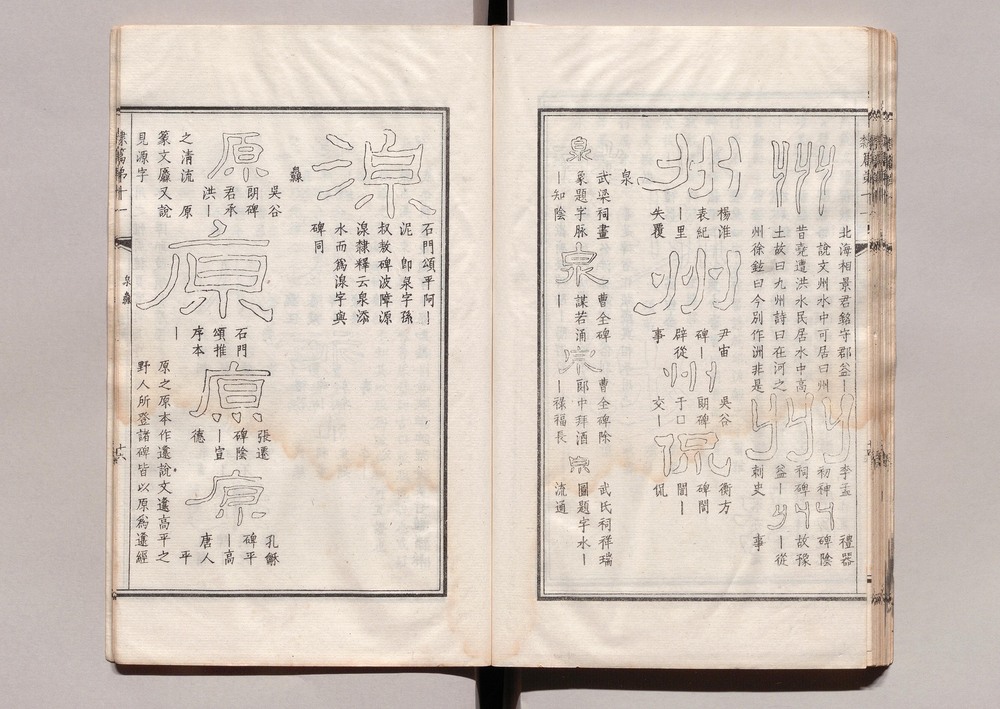 州
北海相景君銘守郡益丨
說文州水中可居曰州
昔堯遭洪水民居水中高
土故曰九州詩曰在河之
州徐鉉曰今別作洲非是
州
李孟
初神
祠碑
益丨
刺史
州
禮器
碑陰
故豫
丨從
事
州
楊淮
表紀
丨里
失覆
州
尹宙
碑丨
辟從
事
州
吳谷
朗碑
于口
交丨
侃
衡方
碑誾
誾丨
侃
泉
泉
武梁祠畫
象題字脉
丨知陰
泉
曹全碑
謀若涌
丨
泉
曹全碑陰
郎中拜酒
丨祿福長
泉
武氏祠祥瑞
圖題字水丨
流通
湶
石門頌平阿丨
泥 即泉字孫
叔敖碑波障源
湶隸釋云泉添
水而爲湶字與
碑同
灥
原
吳谷
朗碑
君承
洪丨
之清流 原
篆文厵又說
見源字
原
石門
頌推
序本
丨
原
張遷
碑陰
丨宣
德
原
孔龢
碑平
丨高
唐人
平
原之原本作邍說文邍高平之
野人所登諸碑皆以原爲邍經
隸篇第十一
泉灥
十六